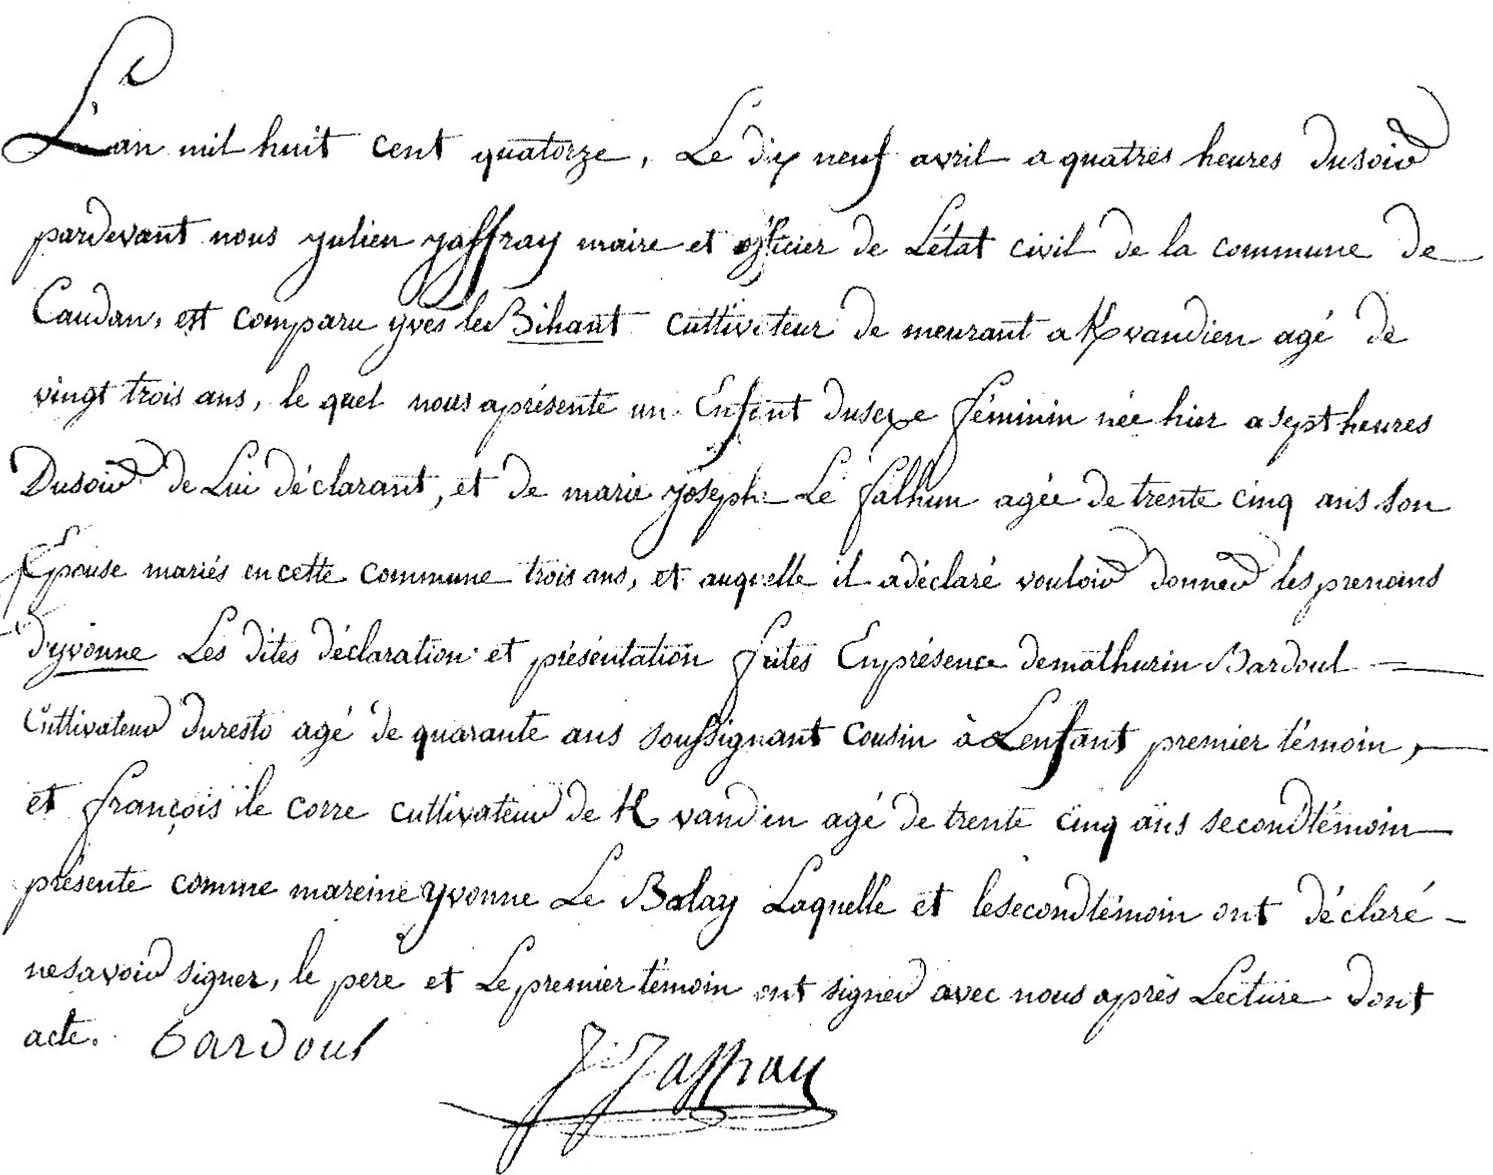 L'an mil huit cent quatorze, Le dix neuf avril a quatres heures dusoir
pardevant nous julien jaffray maire et officier de L'état civil de la commune de
Caudan, est comparu yves le Bihant cultivateur de meurant a Kvandien agé de
vingt trois ans, le quel nous aprésenté un Enfant dusexe féminin née hier a sept heures
Dusoir de Lui déclarant, et de marie joseph Le falhun agée de trente cinq ans son
Epouse mariés en cette commune trois ans, et auquelle il adéclaré vouloir donner les prenoms
d'yvonne Les dites déclaration et présentation faites Enprésence demathurin Bardoul
Cultivateur duresto agé de quarante ans soussignant cousin à Lenfant premier témoin,
et françois le corre cultivateur de K vandien agé de trente cinq ans secondtémoin
présente comme mareine yvonne Le Balay Laquelle et lesecondtémoin ont déclaré
nesavoir signer, le pere et Le premier témoin ont signer avec nous après Lecture dont
acte. Bardoul J. Jaffray